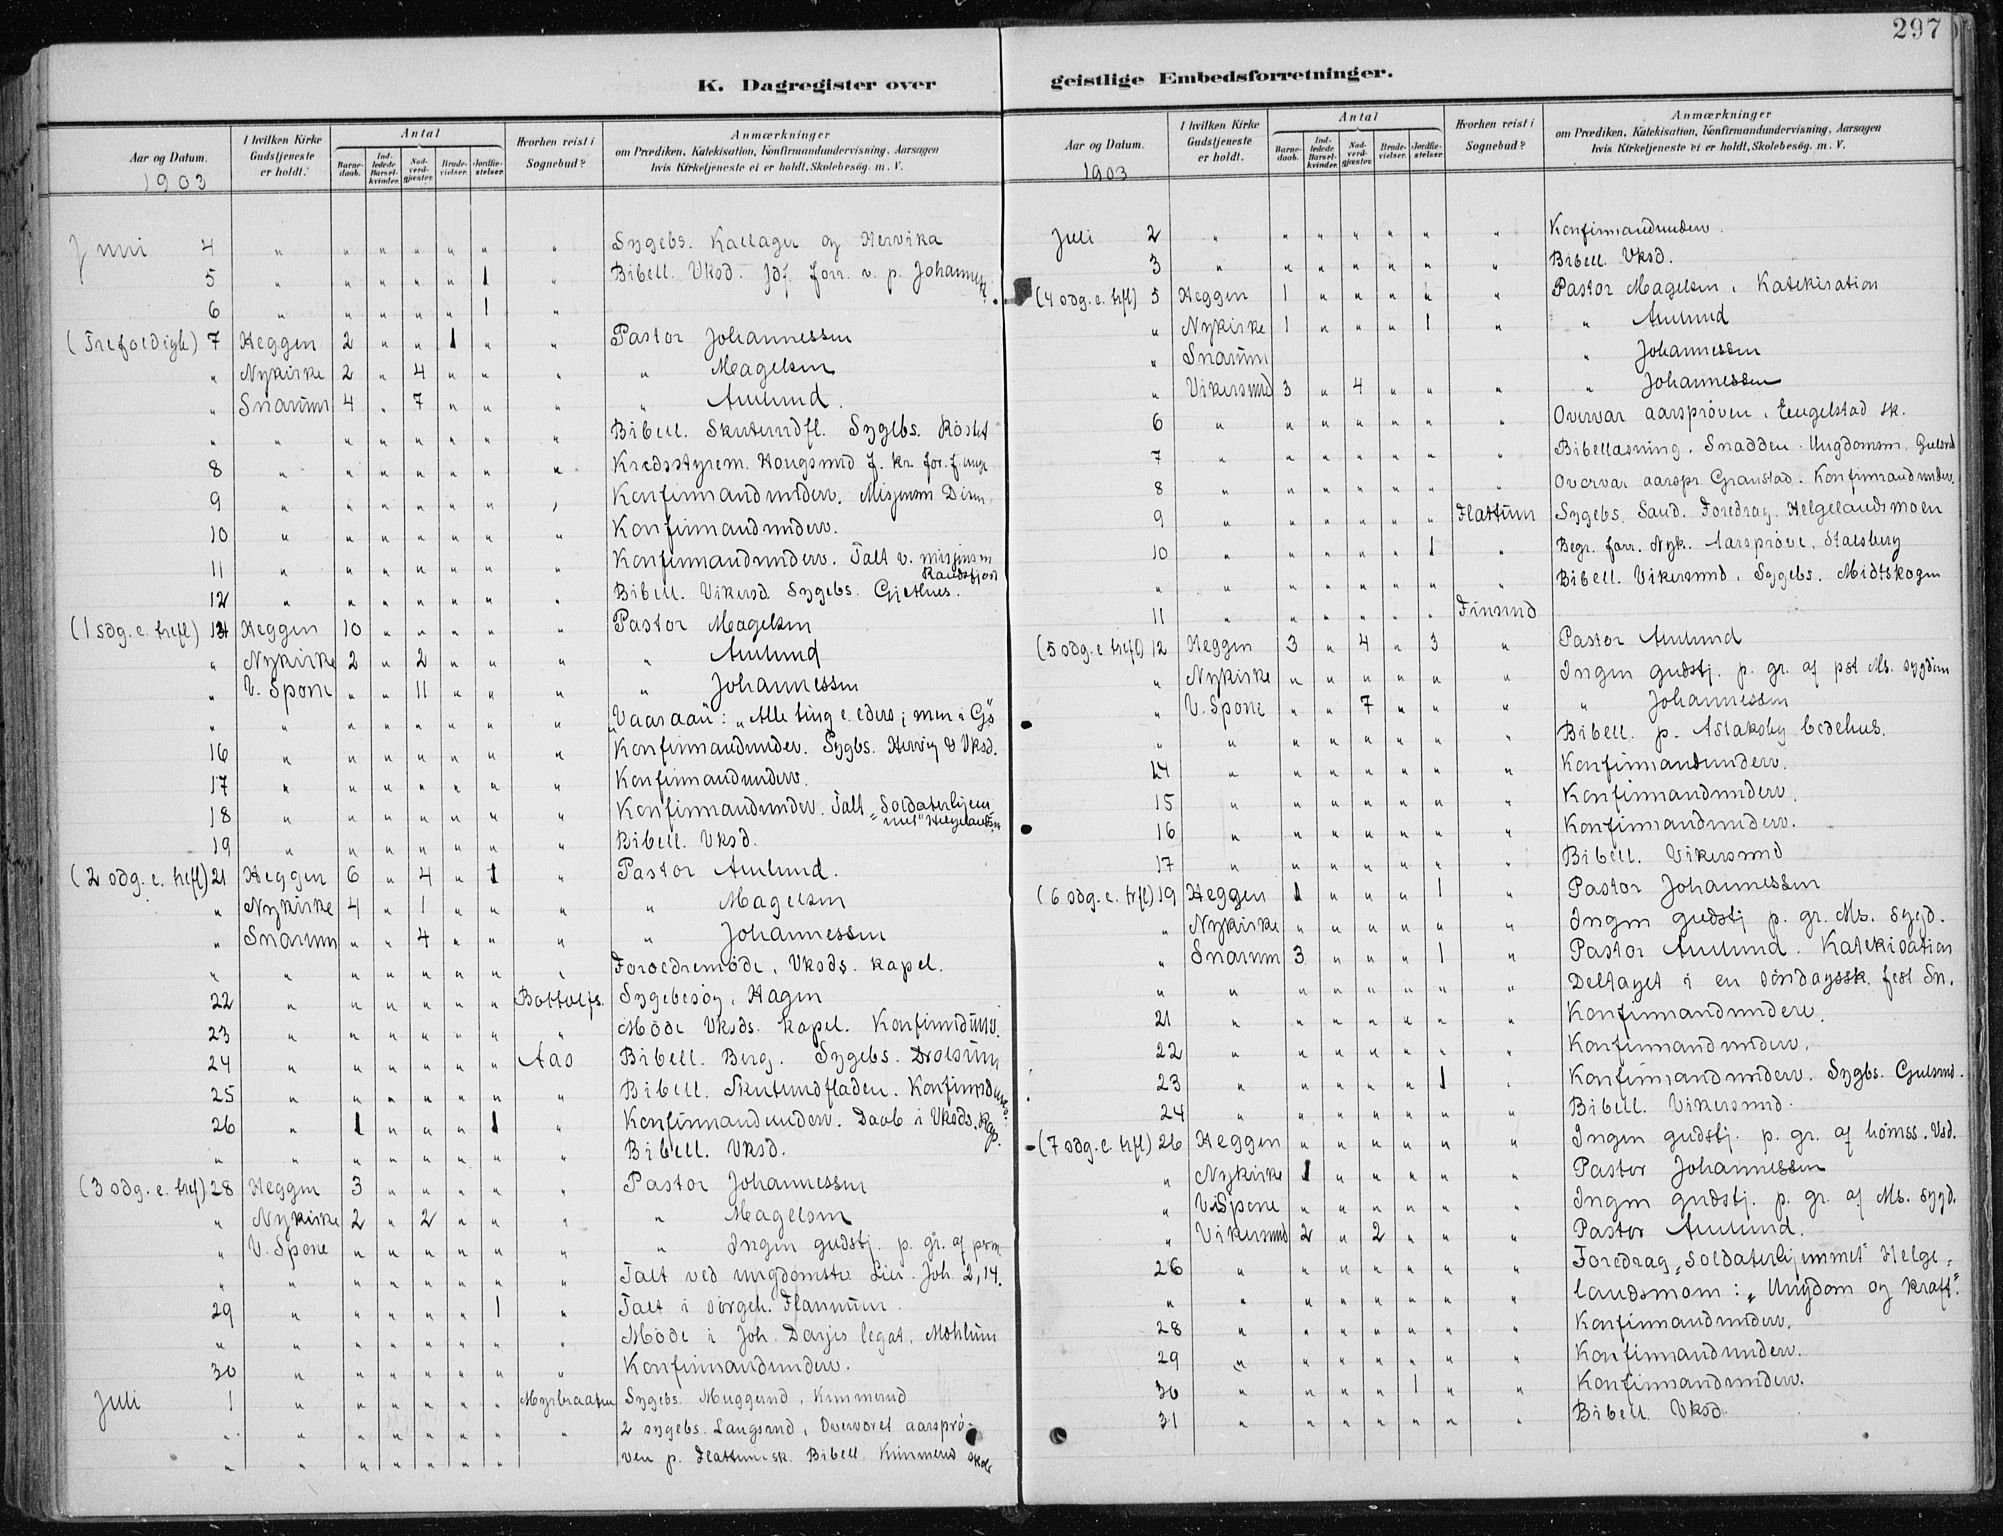 297
K. Dagregister over
Aar og Datum.
1903
I hvilken Kirke Gudstjeneste er holdt.
Antal
Barnedaab.
Indledede Barselkvinder.
Nadverdgjæster.
Brudevielser.
Jordfæstelser.
Hvorhen reist i Sognebud?
Anmærkninger
om Prædiken, Katekisation, Konfirmandundervisning, Aarsagen
hvis Kirketjeneste ei er holdt, Skolebesøg. m. V.
Juni 4 " " " " " " " Sygebs. Kallager og Hervika
5 " " " " " 1 " Bibell. Vksd. Jdf. forr. v. p. Johanness.
6 " " " " " 1 "
(Trefoldigh) 7 Heggen 2 " " 1 " " Pastor Johannessen
" Nykirke 2 " 4 " " " " Magelsen
" Snarum 4 " 7 " " " " Amlund.
" " " " " " " " Bibell. Skuterudfl. Sygebs.
8 " " " " " " " Kredsstyrem. Hougsund f. kr. for.
9 " " " " " " " Konfirmandunderv.
10 " " " " " " " Konfirmandunderv.
11 " " " " " " " Konfirmandunderv. Talt v. misjonsm Randsfjord
12 " " " " " " " Bibell. Vikersd. Sygebs. Gjethus.
(1 sdg. e. trefl) 14 Heggen 10 " " " " " Pastor Magelsen
" Nykirke 2 " 2 " " " " Amlund
" V. Spone " " 11 " " " " Johannessen
" " " " " " " " Vaaraaň: "Alle ting e. eders; men i
16 " " " " " " " Konfirmandunder. Sygbs. Hervig & Vksd.
17 " " " " " " " Konfirmandunderv.
18 " " " " " " " Konfirmandunder. Talt "Soldaterhjem
19 " " " " " " " Bibell. Vksd.
(2 sdg. e. trefl) 21 Heggen 6 " 4 " 1 " Pastor Amlund.
" Nykirke 4 " 1 " " " " Magelsen
" Snarum " " 4 " " " " Johannessen
" " " " " " " " Foreldremöde, Vksds. kapel.
22 " " " " " " Bottolfs. Sygebesøg, Hagen
23 " " " " " " " Möde Vksds. kapel.
24 " " " " " " Aas Bibell. Berg. Sygebs. Drolsum
25 " " " " " " " Bibell. Skuterudfladen.
26 " 1 " " " 1 " Konfirmandunderv. Daab i Vksds. kap.
" " " " " " " " Bibell. Vksd.
(3 sdg. e. tref) 28 Heggen 3 " " " " " Pastor Johannessen
" Nykirke 2 " 2 " " " " Magelsen
" V. Spone " " " " " " " Ingen gudstj. p. gr. af perm
" " " " " " " " Talt ved ungdomsstv. Lier. Joh. 2,14.
29 " " " " " 1 " Talt i sörgeh. Flannum.
" " " " " " " " Möde i Joh. legat, Mohlum
30 " " " " " " " Konfirmandunderv.
Juli 1 " " " " " " Myrbraaten Sygebs. Muggerud, Kimmerud
" " " " " " " " 2 sygebs. Langsrud, Overværet aarsprö-
" " " " " " " ven p. Flattum sk. Bibell. Kimmerud skole
geistlige Embedsforretninger.
Aar og Datum.
1903
I hvilken Kirke Gudstjeneste er holdt.
Antal
Barnedaab.
Indledede Barselkvinder.
Nadverdgjæster.
Brudevielser.
Jordfæstelser.
Hvorhen reist i Sognebud?
Anmærkninger
om Prædiken, Katekisation, Konfirmandundervisning, Aarsagen
hvis Kirketjeneste ei er holdt, Skolebesøg. m. V.
Juli 2 " " " " " " " Konfirmandunderv.
3 " " " " " " " Bibell. Vksd.
(4 sdg. e. trfl) 5 Heggen 1 " " " " " Pastor Magelsen, Katekisation
" Nykirke 1 " " " 1 " " Amlund
" Snarum " Johannessen
" Vikersund 3 " 4 " " " " Johannessen
6 " " " " " " " Overvar aarspröven, Engelstad sk.
7 " " " " " " " Bibellæsning, Snadden. Ungdomsm.
8 " " " " " " " Overvar aarspr. Granstad. Konfirmandunderv.
9 " " " " " " Flattum Sygebs. Sand. Foredrag. Helgelandsmoen
10 " " " " " 1 " Begr. forr. Nyk. Aarspröve, Stalsberg
" " " " " " " " Bibell. Vikersund, Sygebs. Midtskogen
11 " " " " " " Finsrud
(5 sdg. e trefl) 12 Heggen 3 " 4 " 3 " Pastor Amlund
" Nykirke " " " " " " Ingen gudstj. p. gr. af pst Ms. sygdom
" V. Spone " " 7 " " " " Johannessen
" " " " " " " " Bibell. p. Aslaksby bedehus.
14 " " " " " " " Konfirmantunderv.
15 " " " " " " " Konfirmandunderv.
16 " " " " " " " Konfirmandunderv.
17 " " " " " " " Bibell. Vikersund
(6 sdg. e. trfl) 19 Heggen 1 " " " 1 " Pastor Johannessen
" Nykirke " " " " " " Ingen gudstj p. gr. Ms. sygd.
" Snarum 3 " " " 1 " Pastor Amlund. Katekisation
" " " " " " " " Deltaget i en söndagssk. fest Sn.
21 " " " " " " " Konfirmandunderv.
22 " " " " " " " Konfirmandunderv.
23 " " " " " 1 " Konfirmandunderv. Sygbs. Gulsrud.
24 " " " " " " " Bibell. Vikersund.
(7 sdg. e. trfl) 26 Heggen " " " " " " Ingen gudstj. p. gr. af Vsd.
" Nykirke 1 " " " " " Pastor Johannessen
" V. Spone " " " " " " Ingen gudstj. p. gr. af Ms. sygd.
" Vikersund 2 " 2 " " " Pastor Amlund.
26 " " " " " " " Foredrag "Soldaterhjemmet" Helge-
" " " " " " " " landsmoen: "Ungdom og kraft".
28 " " " " " " " Konfirmandunderv.
29 " " " " " " " Konfirmandunderv.
30 " " " " " 1 " Konfirmandunderv.
31 " " " " " " " Bibell. Vksd.